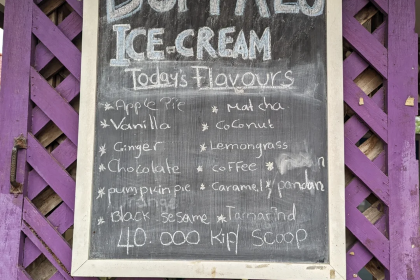 BUFFALO
ICE-CREAM
Today's Flavours
* Apple Pie
* Vanilla
* Ginger
* Chocolate
* pumpkin pie
* Black sesame
* Matcha
* Coconut
* Lemongrass
* Coffee *
* Caramel * pandan
* Tamarind
40.000 KIP/ SCOOP